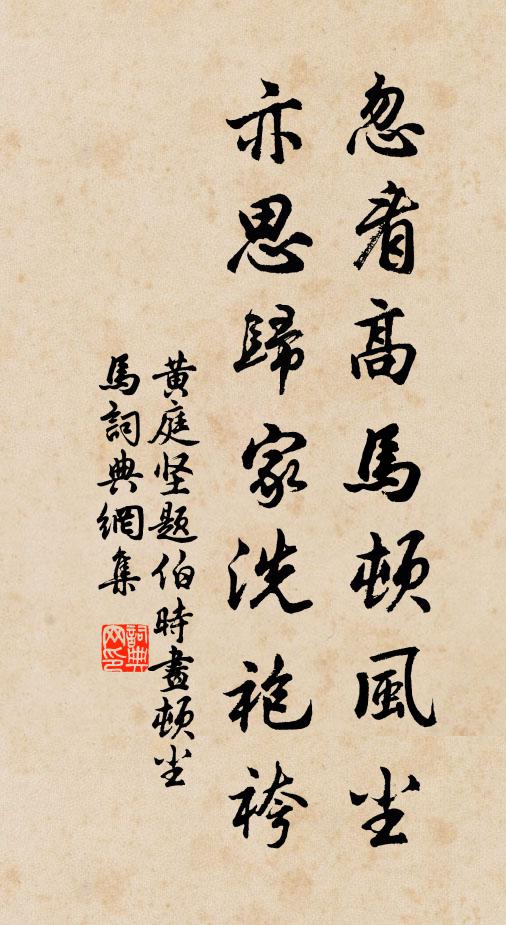 忽看高馬頓風尘
亦思歸家洗袍袴
黃庭坚题伯時畫頓尘
馬詞典網集
詞典网印